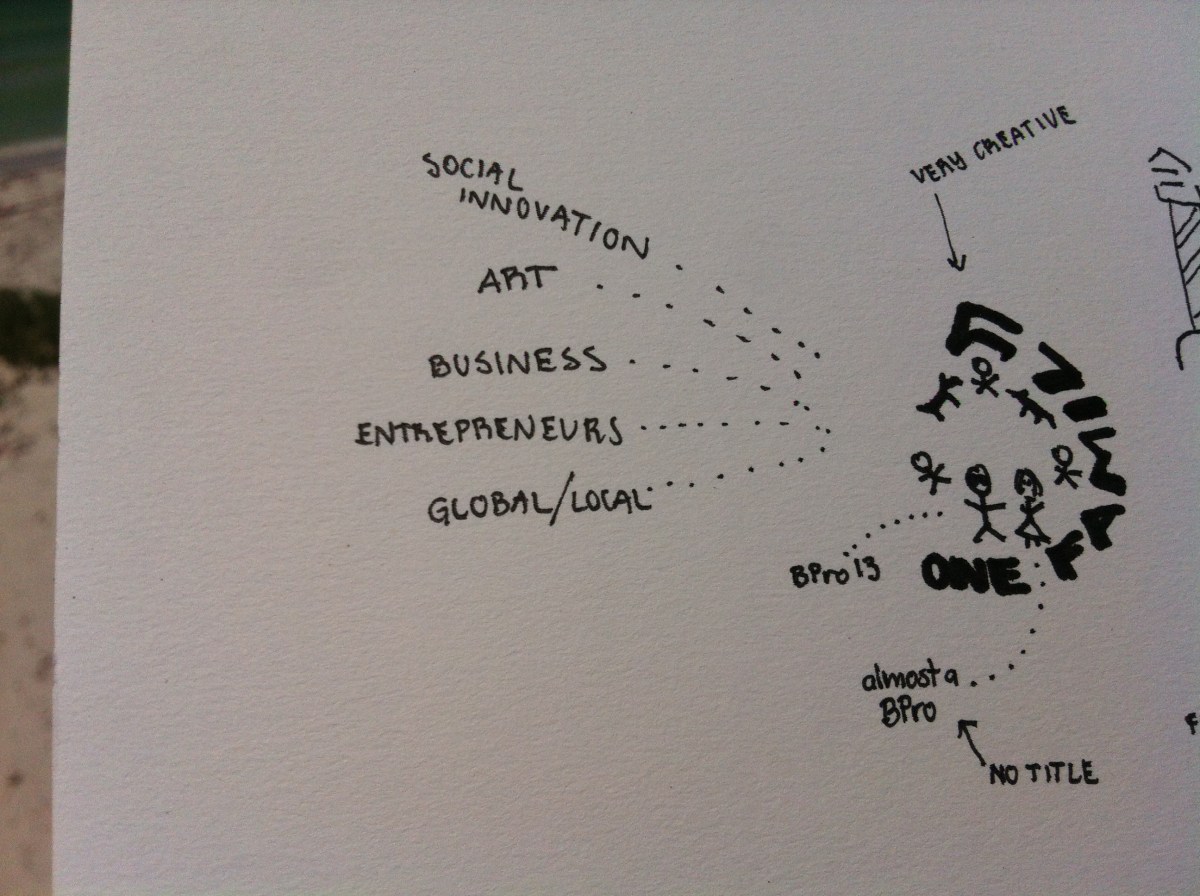 SOCIAL
INNOVATION
ART
BUSINESS
ENTREPRENEURS
GLOBAL/LOCAL
VERY CREATIVE
ONE FAMILY
BPro 13
almost a
BPro
NO TITLE